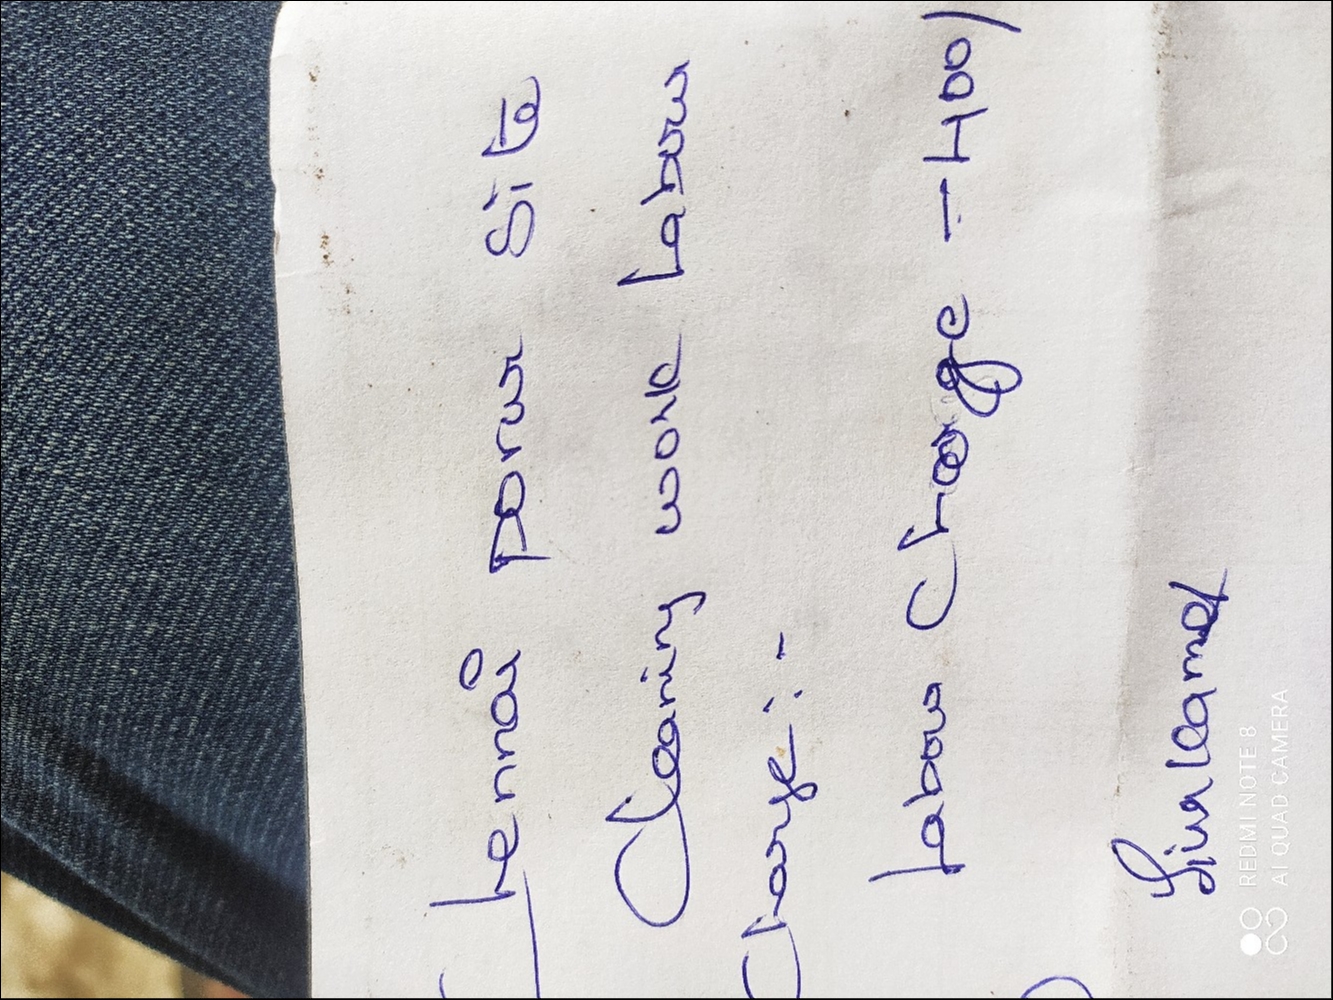 Chennai porur Site
Cleaning work labour
Charge :-
labour Charge — 400/
Sivakamat
REDMI NOTE 8
AI QUAD CAMERA